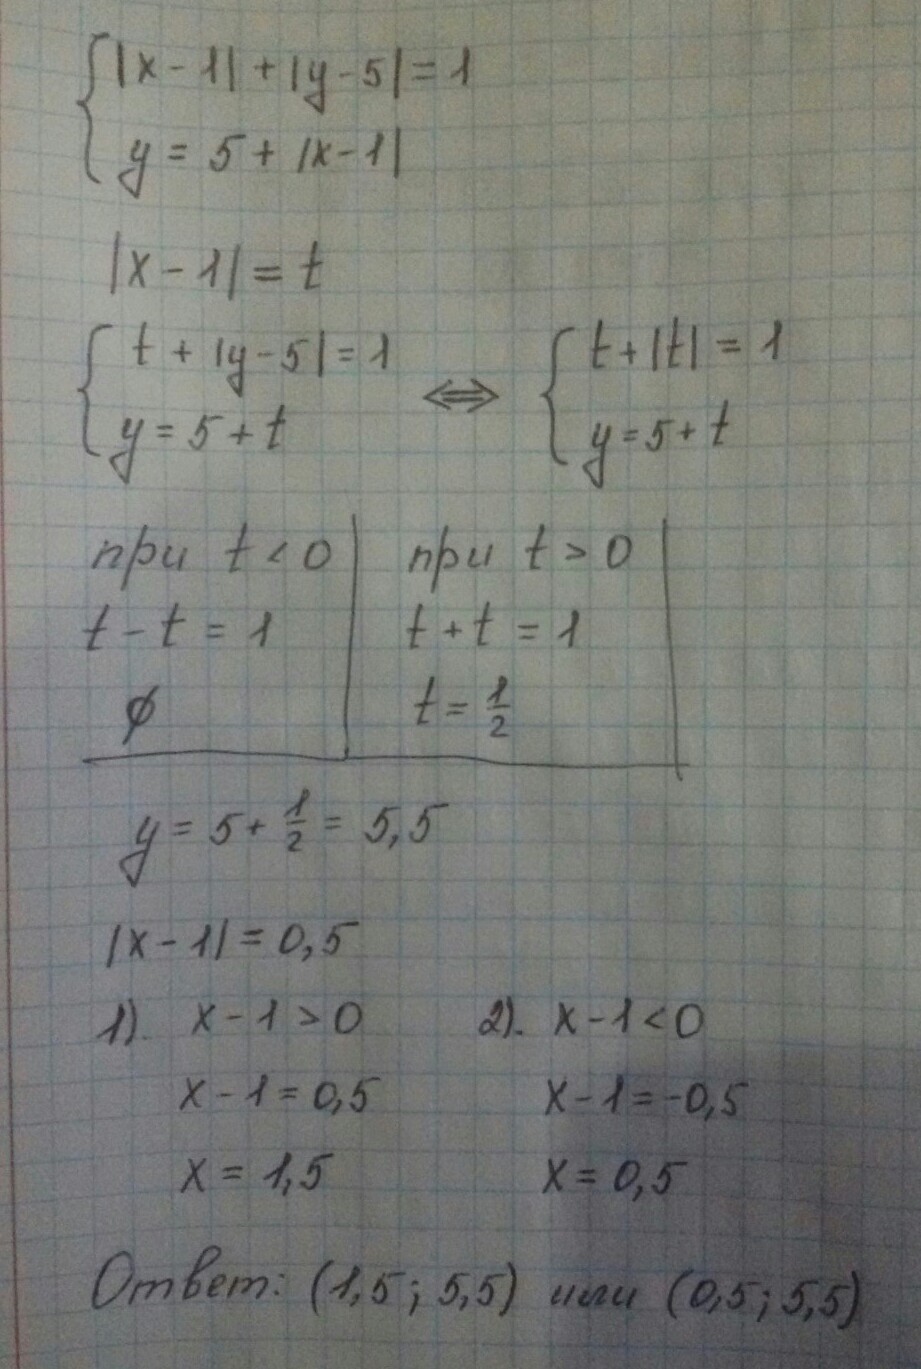 |x - 1| + |y - 5| = 1
y = 5 + |x - 1|
|x - 1| = t
t + |y - 5| = 1 ⟺ t + |t| = 1
y = 5 + t y = 5 + t
при t < 0 при t > 0
t - t = 1 t + t = 1
∅ t = 1/2
y = 5 + 1/2 = 5,5
|x - 1| = 0,5
1). x - 1 > 0 2). x - 1 < 0
x - 1 = 0,5 x - 1 = -0,5
x = 1,5 x = 0,5
Ответ: (1,5; 5,5) или (0,5; 5,5)